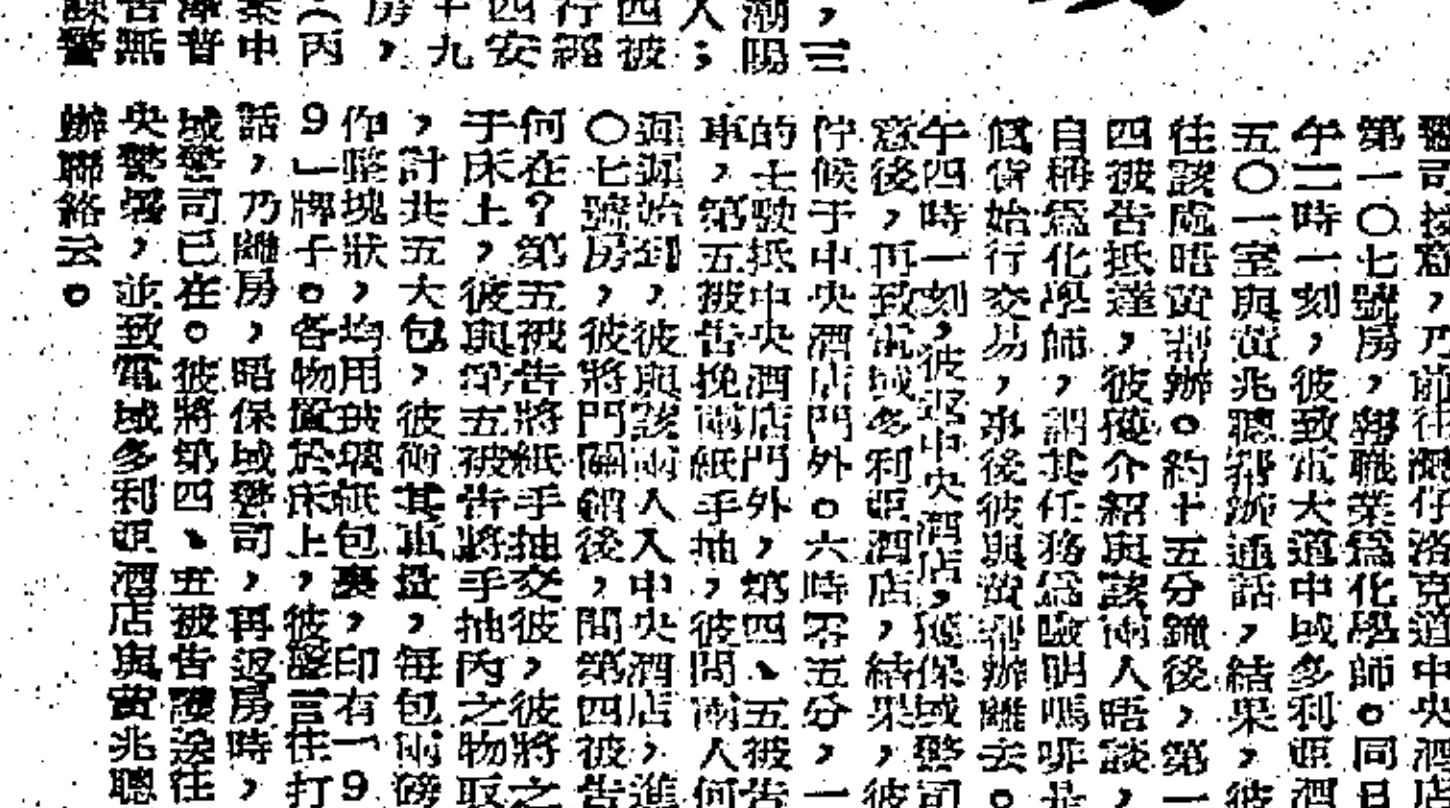 ，三
潮陽
人；
四被
行經
四安
十九
房，
（丙
案中
警司按意，乃前往灣仔洛克道中央酒店
第一〇七號房，報職業為化學師。同日
午二時一刻，彼致電大道中域多利亞酒
五〇一室與黃兆聰幫辦通話，結果，彼
往該處晤黃幫辦。約十五分鐘後，第一
四被告抵達，彼獲介紹與該兩人晤談，
自稱為化學師，謂其任務為驗明嗎啡是
低貨始行交易，事後彼與黃幫辦離去。
午四時一刻，彼返中央酒店，獲保域警司
意後，再致電域多利亞酒店，結果，彼
佇候于中央酒店門外。六時零五分，一
的士駛抵中央酒店門外，第四、五被告
車，第五被告挽兩紙手抽，彼問兩人何
遲遲始到，彼與該兩人入中央酒店，進
〇七號房，彼將門關鎖後，問第四被告
何在？第五被告將紙手抽交彼，彼將之
于床上，彼與第五被告將手抽內之物取
，計共五大包，彼衡其重量，每包兩磅
作整塊狀，均用玻璃紙包裹，印有一9
9」牌子。各物置於床上，彼詭言往打
話，乃離房，晤保域警司，再返房時，
域警司已在。彼將第四、五被告護送往
央警署，並致電域多利亞酒店與黃兆聰
辦聯絡云。